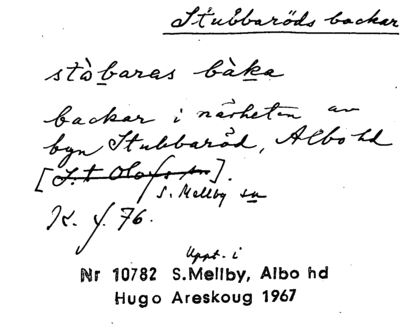 Stubbaröds backar
stòbaras bàka
backar i närheten av
byn Stubbaröd, Albo hd
[S:t Olofs sn].
S. Mellby sn
K. f. 76.
Uppt. i
Nr 10782 S.Mellby, Albo hd
Hugo Areskoug 1967